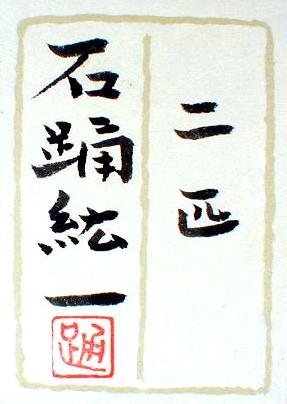 二匹
石踊紘一
踊